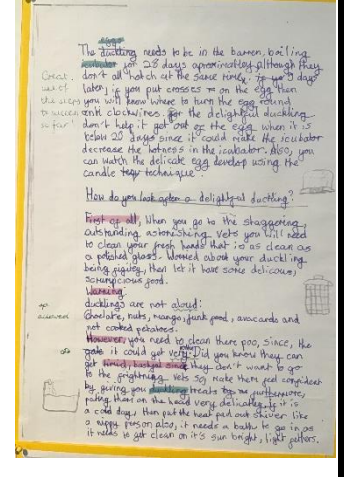 egg
The duckling needs to be in the barren, boiling
icubator for 28 days aproximatley although they
don't all hatch at the same time. 9 days
later, if you put crosses on the egg then
you will know where to turn the egg round
anti clockwires. For the delightful duckling
don't help it get out of the egg when it is
below 20 days since it could make the icubator
decrease the hotness in the icubator. Also, you
can watch the delicate egg develop using the
candle technique.
Great
use of
the steps
to succeed
so far!
How do you look after a delightful duckling?
First of all, When you go to the staggering,
outstanding, astonishing vets you will need
to clean your fresh hands that is as clean as
a polished glass. Worried about your duckling
being piguey, then let it have some delicous,
scrumpcious food.
Warning
ducklings are not aloud:
Choclate, nuts, mango, junk food, avacardo and
not cooked potatoes.
However, you need to clean there poo, since, the
it could get very Did you know they can
get timid, bashful since they don't want to go
to the frightning vets so, make them feel confident
by giving you duckling treats furthermore,
pating them on the head very delicatley. If it is
a cold day, then put the heat pad out shiver like
a nippy person also, it needs a bath to go in as
it needs to get clean on it's sun bright, light feathers.